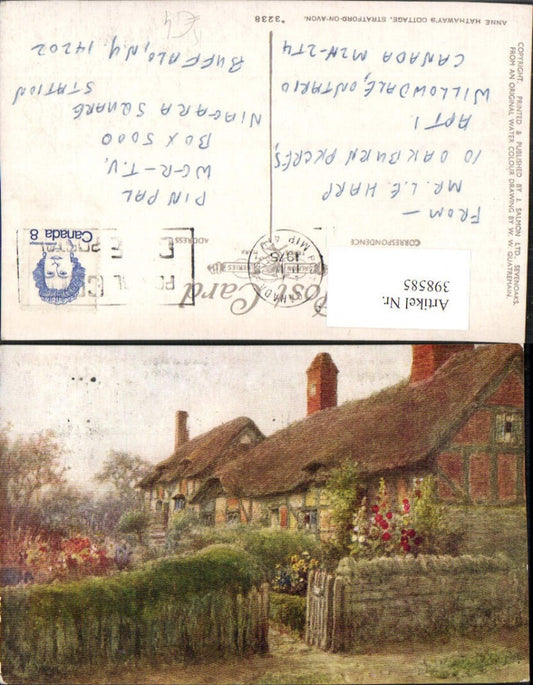 ANNE HATHAWAY'S COTTAGE, STRATFORD-ON-AVON.
*3238
COPYRIGHT. PRINTED & PUBLISHED BY J. SALMON LTD., SEVENOAKS.
FROM AN ORIGINAL WATER COLOUR DRAWING BY W. W. QUATREMAIN.
Post Card
CORRESPONDENCE
ADDRESS
FROM —
MR. L.E. HARP
10 OAKBURN PKCRES,
APT 1
WILLOWDALE, ONTARIO
CANADA M2N-2T4
PIN PAL
WGR-T.V.
BOX 5000
NIAGARA SQUARE
STATION
BUFFALO, N.Y. 14202
Canada 8
1975
CANADA
Artikel Nr.
398585